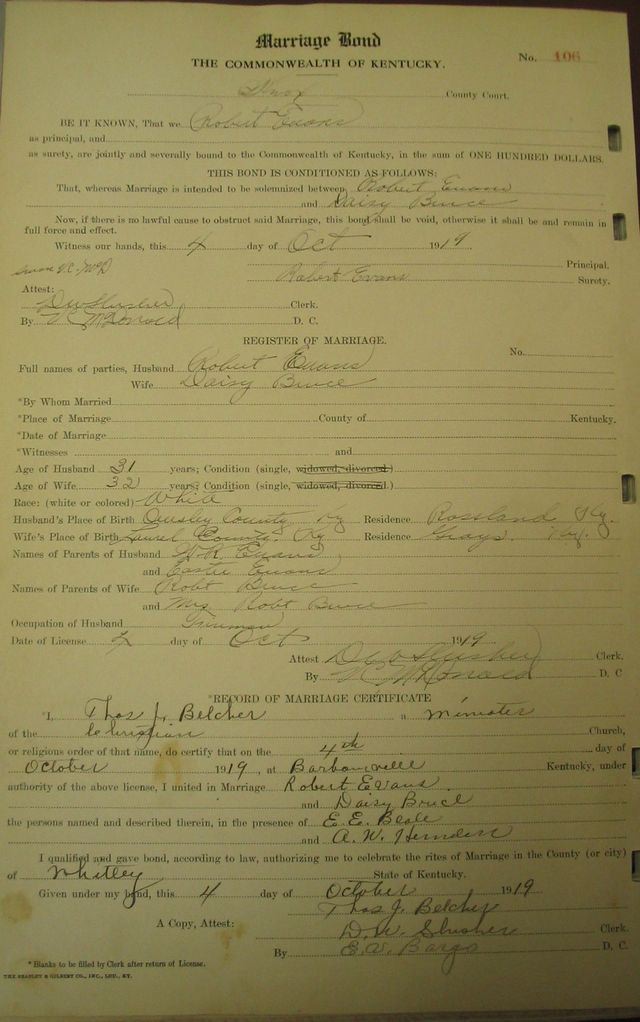 Marriage Bond
THE COMMONWEALTH OF KENTUCKY.
No. 106
Knox County Court.
BE IT KNOWN, That we Robert Evans
as principal, and
as surety, are jointly and severally bound to the Commonwealth of Kentucky, in the sum of ONE HUNDRED DOLLARS.
THIS BOND IS CONDITIONED AS FOLLOWS:
That, whereas Marriage is intended to be solemnized between Robert Evans
and Daisy Bruce
Now, if there is no lawful cause to obstruct said Marriage, this bond shall be void, otherwise it shall be and remain in
full force and effect.
Witness our hands, this 4 day of Oct 1919
Principal.
Robert Evans Surety.
Attest:
D W Slusher Clerk.
By D. C.
REGISTER OF MARRIAGE.
No.
Full names of parties, Husband Robert Evans
Wife Daisy Bruce
*By Whom Married
*Place of Marriage County of Kentucky.
*Date of Marriage
*Witnesses and
Age of Husband 31 years; Condition (single, widowed, divorced.)
Age of Wife 32 years; Condition (single, widowed, divorced.)
Race: (white or colored) White
Husband's Place of Birth Owsley County Ky Residence Rossland Ky.
Wife's Place of Birth Laurel County Ky Residence Grays. Ky.
Names of Parents of Husband W.R. Evans
and Easter Evans
Names of Parents of Wife Robt Bruce
and Mrs Robt Bruce
Occupation of Husband
Date of License 4 day of Oct 1919
Attest D W Slusher Clerk.
By D. C
*RECORD OF MARRIAGE CERTIFICATE
I, Thos J. Belcher a Minister
of the Christian Church,
or religious order of that name, do certify that on the 4th day of
October 1919, at Barbourville Kentucky, under
authority of the above license, I united in Marriage Robert Evans
and Daisy Bruce
the persons named and described therein, in the presence of E. E. Beale
and A. W. Herndon
I qualified and gave bond, according to law, authorizing me to celebrate the rites of Marriage in the County (or city)
of Whitley State of Kentucky.
Given under my bond, this 4 day of October 1919
Thos J. Belcher
A Copy, Attest: D. W. Slusher Clerk.
By E. V. Bargo D. C.
* Blanks to be filled by Clerk after return of License.
THE BRADLEY & GILBERT CO., INC., LOU., KY.